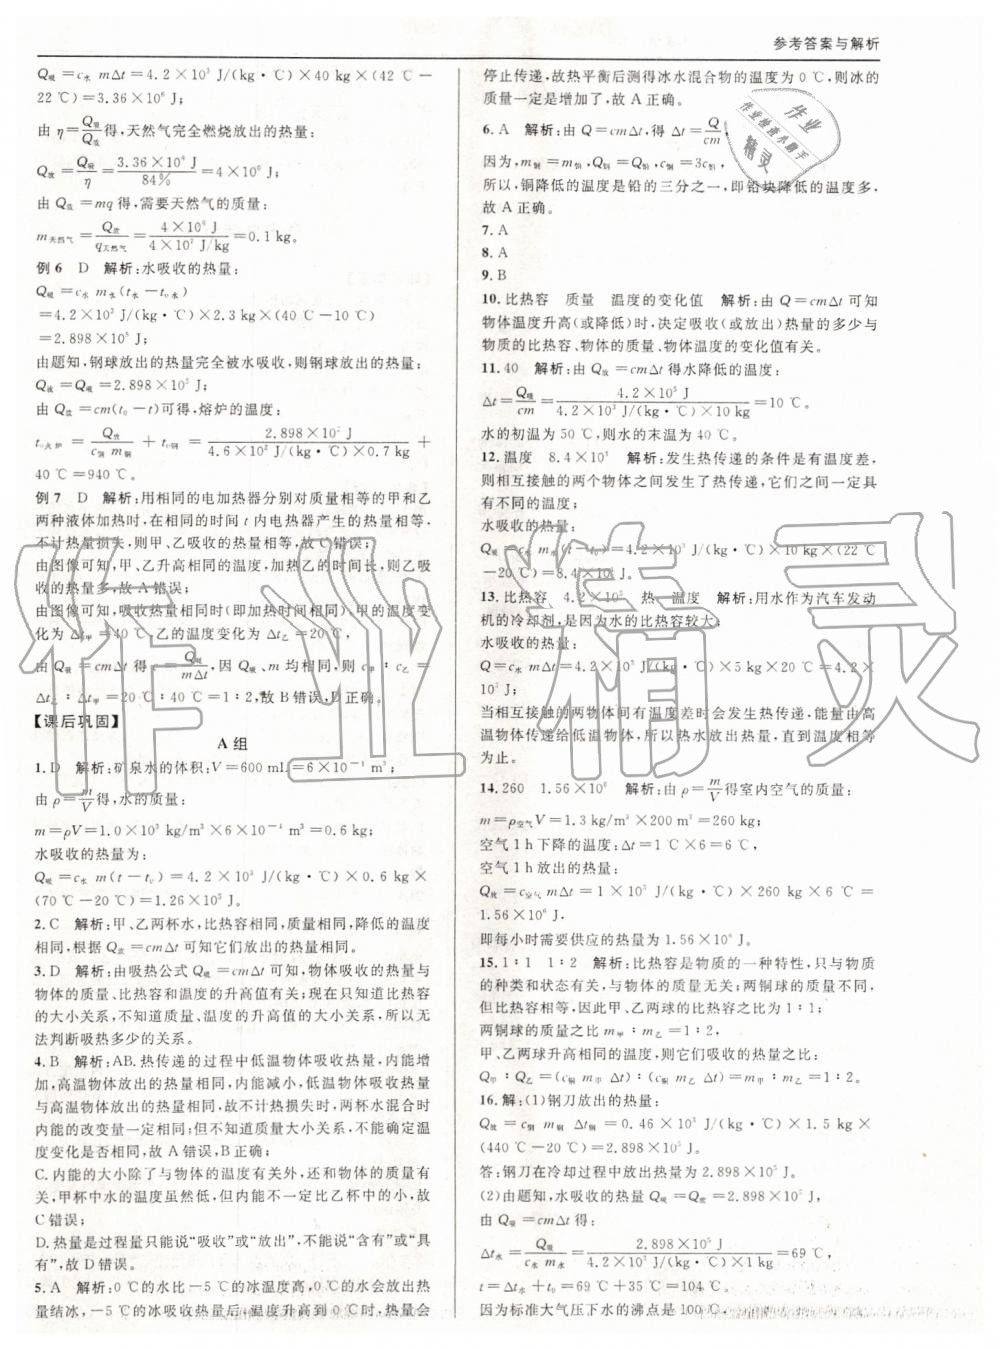 参考答案与解析
Q吸=c水 mΔt=4.2×10³ J/(kg·℃)×40 kg×(42 ℃-
22 ℃)=3.36×10⁶ J;
由 η=Q吸/Q放得,天然气完全燃烧放出的热量:
Q放=Q吸/η=3.36×10⁶ J/84%=4×10⁶ J;
由 Q放=mq 得,需要天然气的质量:
m天然气=Q放/q天然气=4×10⁶ J/4×10⁷ J/kg=0.1 kg。
例 6 D 解析:水吸收的热量:
Q吸=c水 m水(t水-t₀水)
=4.2×10³ J/(kg·℃)×2.3 kg×(40 ℃-10 ℃)
=2.898×10⁵ J;
由题知,钢球放出的热量完全被水吸收,则钢球放出的热量:
Q放=Q吸=2.898×10⁵ J;
由 Q放=cm(t₀-t)可得,熔炉的温度:
t₀火炉=Q放/c钢 m钢+t₀钢=2.898×10⁵ J/4.6×10² J/(kg·℃)×0.7 kg+
40 ℃=940 ℃。
例 7 D 解析:用相同的电加热器分别对质量相等的甲和乙
两种液体加热时,在相同的时间 t 内电热器产生的热量相等,
不计热量损失,则甲、乙吸收的热量相等,故 C 错误;
由图像可知,甲、乙升高相同的温度,加热乙的时间长,则乙吸
收的热量多,故 A 错误;
由图像可知,吸收热量相同时(即加热时间相同),甲的温度变
化为 Δt甲=40 ℃,乙的温度变化为 Δt乙=20 ℃,
由 Q吸=cmΔt 得 c=Q吸/mΔt,因 Q吸、m 均相同,则 c甲∶c乙=
Δt乙∶Δt甲=20 ℃∶40 ℃=1∶2,故 B 错误,D 正确。
【课后巩固】
A 组
1. D 解析:矿泉水的体积:V=600 mL=6×10⁻⁴ m³;
由 ρ=m/V得,水的质量:
m=ρV=1.0×10³ kg/m³×6×10⁻⁴ m³=0.6 kg;
水吸收的热量为:
Q吸=c水 m(t-t₀)=4.2×10³ J/(kg·℃)×0.6 kg×
(70 ℃-20 ℃)=1.26×10⁵ J。
2. C 解析:甲、乙两杯水,比热容相同,质量相同,降低的温度
相同,根据 Q放=cmΔt 可知它们放出的热量相同。
3. D 解析:由吸热公式 Q吸=cmΔt 可知,物体吸收的热量与
物体的质量、比热容和温度的升高值有关;现在只知道比热容
的大小关系,不知道质量、温度的升高值的大小关系,所以无
法判断吸热多少的关系。
4. B 解析:AB.热传递的过程中低温物体吸收热量,内能增
加,高温物体放出的热量相同,内能减小,低温物体吸收热量
与高温物体放出的热量相同,故不计热损失时,两杯水混合时
内能的改变量一定相同。但不知道质量大小关系,不能确定温
度变化是否相同。故 A 错误,B 正确;
C.内能的大小除了与物体的温度有关外,还和物体的质量有
关,甲杯中水的温度虽然低,但内能不一定比乙杯中的小,故
C 错误;
D.热量是过程量只能说“吸收”或“放出”,不能说“含有”或“具
有”,故 D 错误。
5. A 解析:0 ℃的水比-5 ℃的冰温度高,0 ℃的水会放出热
量结冰,-5 ℃的冰吸收热量后,温度升高到 0 ℃时,热量会
停止传递,故热平衡后测得冰水混合物的温度为 0 ℃,则冰的
质量一定是增加了,故 A 正确。
6. A 解析:由 Q=cmΔt,得 Δt=Q/cm,
因为,m铜=m铅,Q铜=Q铅,c铜=3c铅,
所以,铜降低的温度是铅的三分之一,即铅块降低的温度多,
故 A 正确。
7. A
8. A
9. B
10. 比热容 质量 温度的变化值 解析:由 Q=cmΔt 可知
物体温度升高(或降低)时,决定吸收(或放出)热量的多少与
物质的比热容、物体的质量、物体温度的变化值有关。
11. 40 解析:由 Q放=cmΔt 得水降低的温度:
Δt=Q吸/cm=4.2×10⁵ J/4.2×10³ J/(kg·℃)×10 kg=10 ℃。
水的初温为 50 ℃,则水的末温为 40 ℃。
12. 温度 8.4×10⁴ 解析:发生热传递的条件是有温度差,
则相互接触的两个物体之间发生了热传递,它们之间一定具
有不同的温度;
水吸收的热量:
Q吸=c水 m水(t-t₀)=4.2×10³ J/(kg·℃)×10 kg×(22 ℃
-20 ℃)=8.4×10⁴ J。
13. 比热容 4.2×10⁵ 热 温度 解析:用水作为汽车发动
机的冷却剂,是因为水的比热容较大;
水吸收的热量:
Q=c水 mΔt=4.2×10³ J/(kg·℃)×5 kg×20 ℃=4.2×
10⁵ J。
当相互接触的两物体间有温度差时会发生热传递,能量由高
温物体传递给低温物体,所以热水放出热量,直到温度相同
为止。
14. 260 1.56×10⁶ 解析:由 ρ=m/V得室内空气的质量:
m=ρ空气V=1.3 kg/m³×200 m³=260 kg;
空气 1 h 下降的温度:Δt=1 ℃×6=1 ℃,
空气 1 h 放出的热量:
Q放=c空气 mΔt=1×10³ J/(kg·℃)×260 kg×6 ℃=
1.56×10⁶ J,
即每小时需要供应的热量为 1.56×10⁶ J。
15. 1∶1 1∶2 解析:比热容是物质的一种特性,只与物质
的种类和状态有关,与物体的质量无关;两铜球的质量不同,
但比热容相等,因此甲、乙两球的比热容之比为 1∶1;
两铜球的质量之比 m甲∶m乙=1∶2,
甲、乙两球升高相同的温度,则它们吸收的热量之比:
Q甲∶Q乙=(c铜 m甲 Δt)∶(c铜 m乙 Δt)=m甲∶m乙=1∶2。
16. 解:(1)钢刀放出的热量:
Q放=c钢 m钢 Δt钢=0.46×10³ J/(kg·℃)×1.5 kg×
(440 ℃-20 ℃)=2.898×10⁵ J。
答:钢刀在冷却过程中放出热量为 2.898×10⁵ J。
(2)由题知,水吸收的热量 Q吸=Q放=2.898×10⁵ J,
由 Q吸=cmΔt 得:
Δt水=Q吸/c水 m水=2.898×10⁵ J/4.2×10³ J/(kg·℃)×1 kg=69 ℃,
t=Δt水+t₀=69 ℃+35 ℃=104 ℃,
因为标准大气压下水的沸点是 100 ℃,
作业
作业检查小助手
精灵
作业精灵